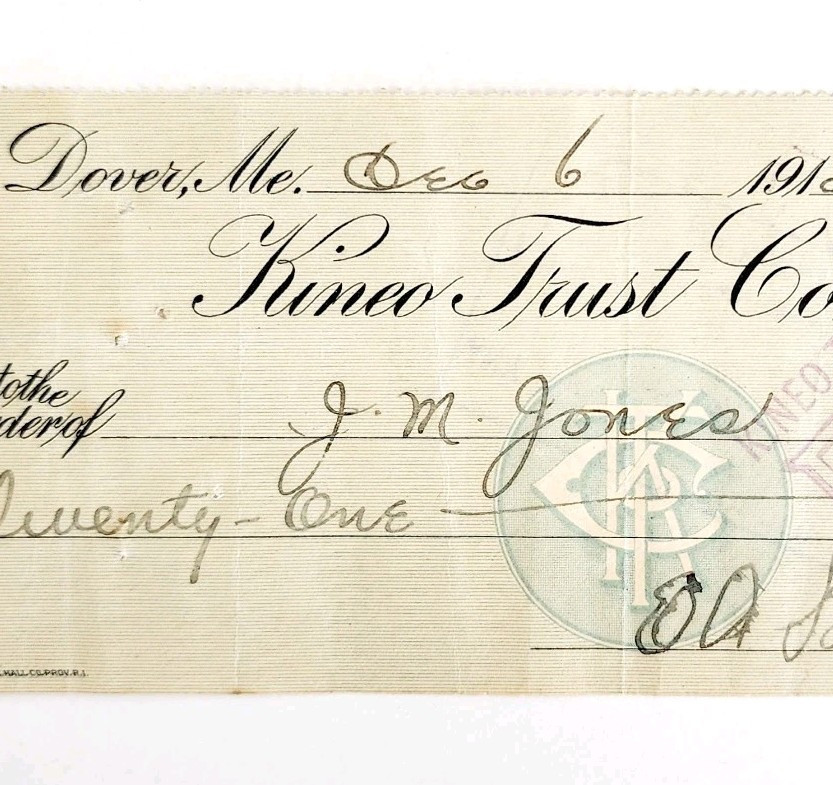 Dover, Me. Dec 6 191
Kineo Trust Co
to the
der of J. M. Jones
KINEO
Twenty-One
KTC
HALL CO. PROV. R.I.